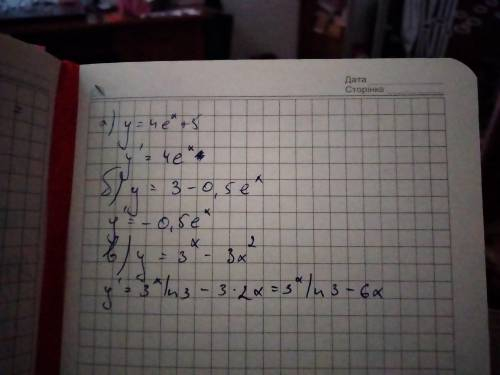 Дата
Сторінка
а) y = 4eˣ + 5
y' = 4eˣ
б) y = 3 - 0,5eˣ
y' = -0,5eˣ
в) y = 3ˣ - 3x²
y' = 3ˣ ln3 - 3·2x = 3ˣ ln3 - 6x